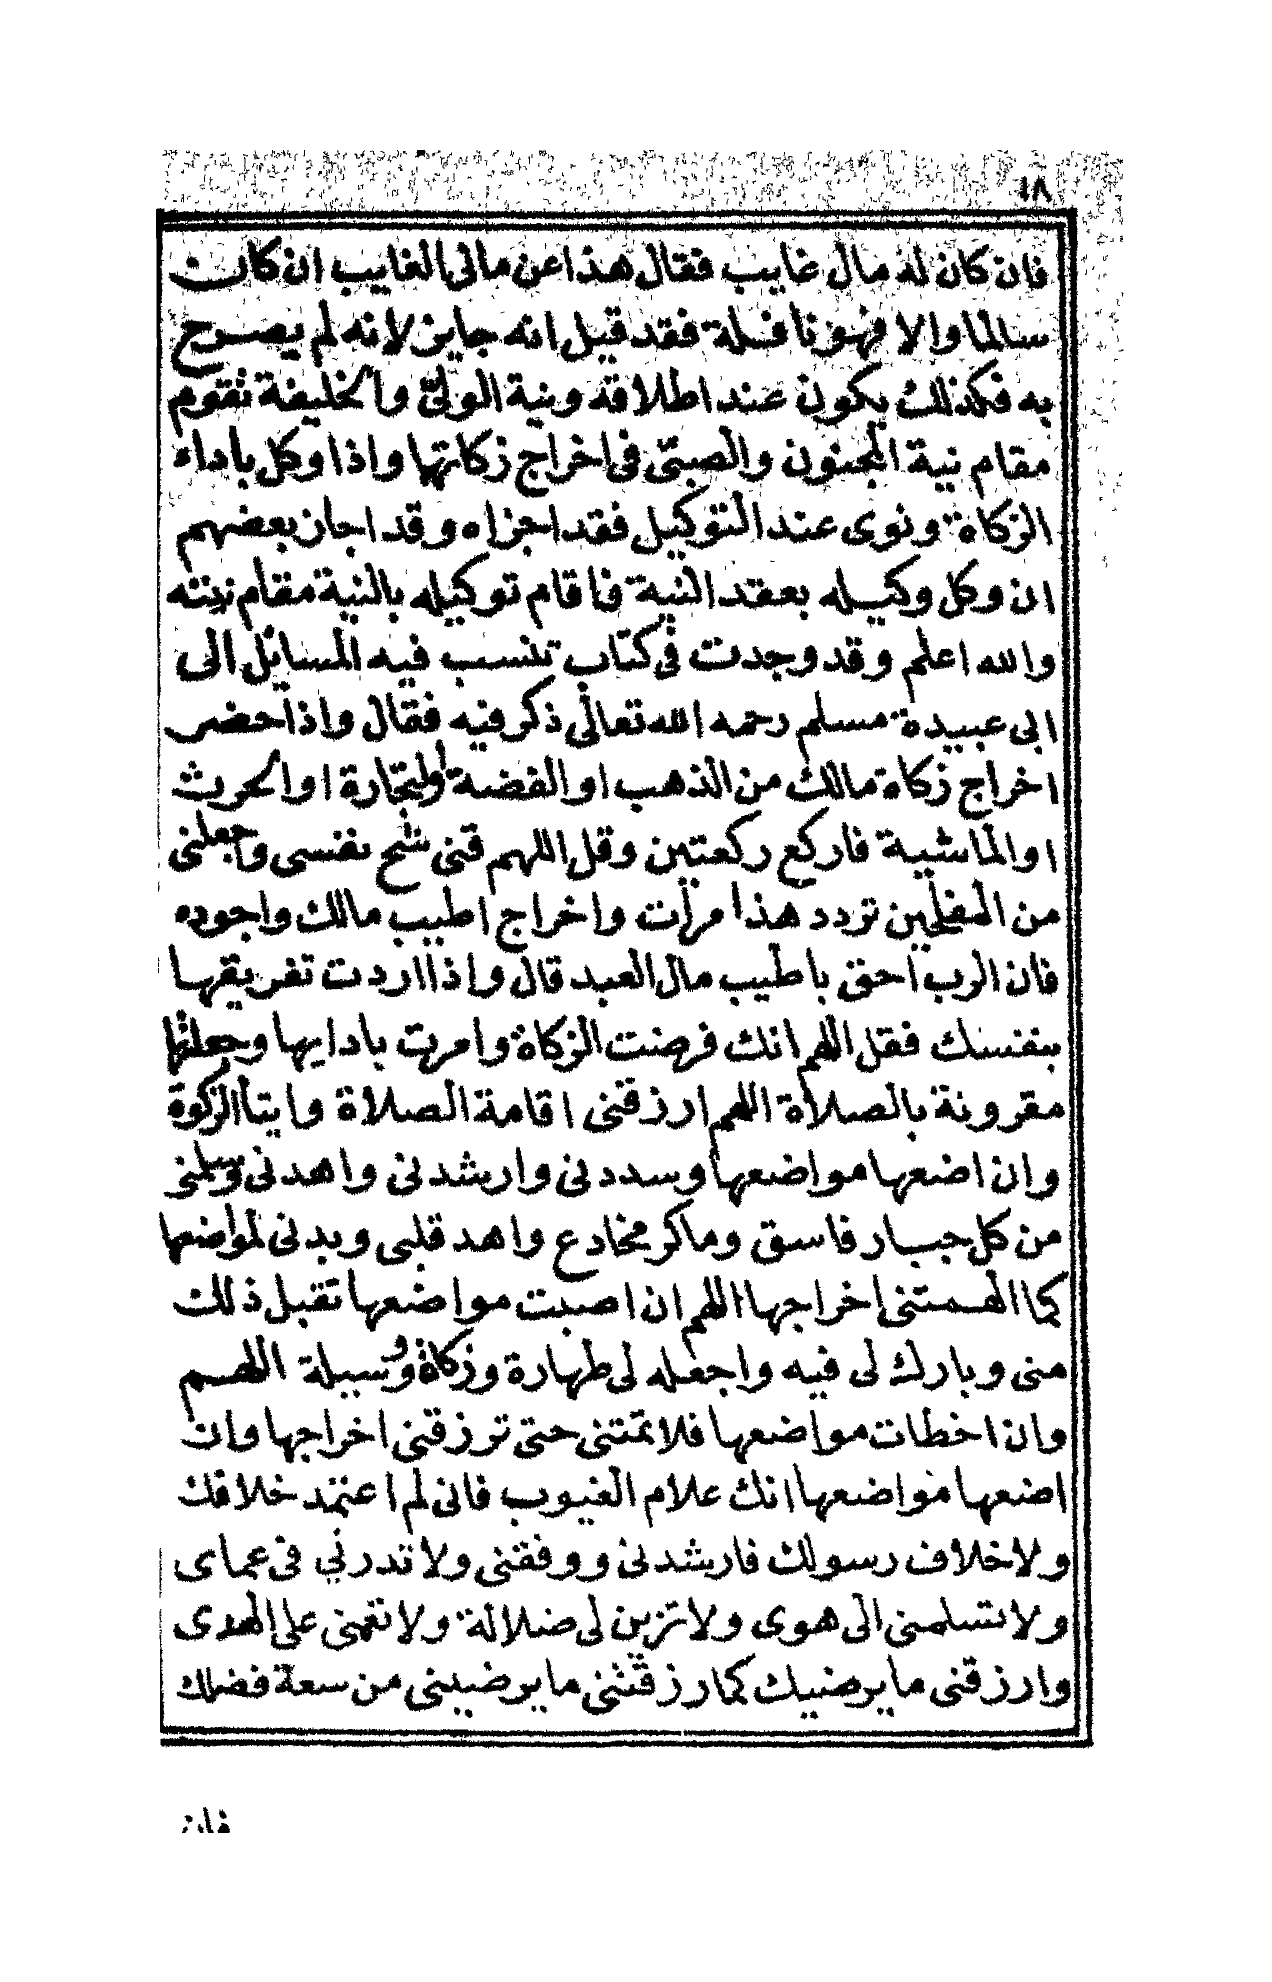 ١٨
فان كان له مال غايب فقال هذا عن مالى الغايب ان كان
سالما والا فهو نافلة فقد قيل انه جايز لانه لم يصرح
به فكذلك يكون عند اطلاقه ونية الولىّ والخليفة تقوم
مقام نية المجنون والصبىّ فى اخراج زكاتها واذا وكل باداء
الزكاة ونوى عند التوكيل فقد اجزاه وقد اجاز بعضهم
ان وكل وكيله بعقد النية فاقام توكيله بالنية مقام نيته
والله اعلم وقد وجدت فى كتاب تنسب فيه المسائل الى
ابى عبيدة مسلم رحمه الله تعالى ذكر فيه فقال واذا احضر
اخراج زكاة مالك من الذهب او الفضة او التجارة او الحرث
او الماشية فاركع ركعتين وقل اللهم قنى شح نفسى واجعلنى
من المفلحين تردد هذا مرات واخراج اطيب مالك واجوده
فان الرب احق باطيب مال العبد قال واذا اردت تفريقها
بنفسك فقل اللهم انك فرضت الزكاة وامرت بادايها وجعلتها
مقرونة بالصلاة اللهم ارزقنى اقامة الصلاة وايتا الزكوة
وان اضعها مواضعها وسددنى وارشدنى واهدنى وسلمنى
من كل جبار فاسق وماكر مخادع واهد قلبى ويدنى لمواضعها
كما الهمتنى إخراجها اللهم ان اصبت مواضعها تقبل ذلك
منى وبارك لى فيه واجعله لى طهارة وزكاة ووسيلة اللهم
وان اخطات مواضعها فلا تمتنى حتى ترزقنى اخراجها وان
اضعها مواضعها انك علام الغيوب فانى لم اعتمد خلافك
ولاخلاف رسولك فارشدنى ووفقنى ولا تدرني فى عماى
ولا تسلمنى الى هوى ولا تزين لى ضلالة ولا تعمنى على الهدى
وارزقنى ما يرضيك كما رزقتنى ما يرضينى من سعة فضلك
فان